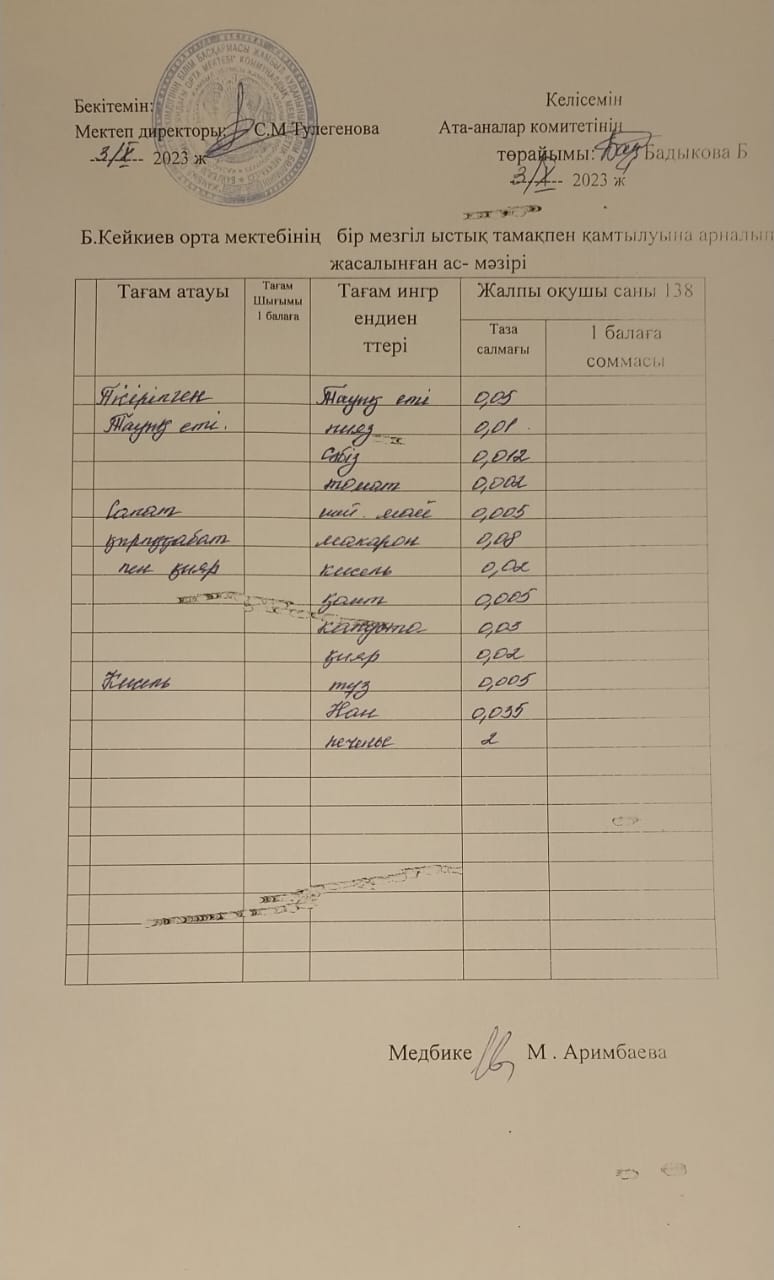 Бекітемін:
Мектеп директоры: С.М Тулегенова
3/X 2023 ж
Келісемін
Ата-аналар комитетінің
төрайымы: Бадыкова Б
3/X 2023 ж
Б.Кейкиев орта мектебінің бір мезгіл ыстық тамақпен қамтылуына арналып
жасалынған ас- мәзірі
Тағам атауы
Тағам
Шығымы
1 балаға
Тағам ингр
ендиен
ттері
Жалпы оқушы саны 138
Таза
салмағы
1 балаға
соммасы
Пісірілген Тауық еті 0,05
Тауық еті. пияз 0,01
сәбіз 0,012
томат 0,002
Салат май 0,005
макарон 0,08
пен қияр кисель 0,02
қант 0,005
капуста 0,03
қияр 0,02
Кисель тұз 0,005
Нан 0,035
печенье 2
Медбике М . Аримбаева